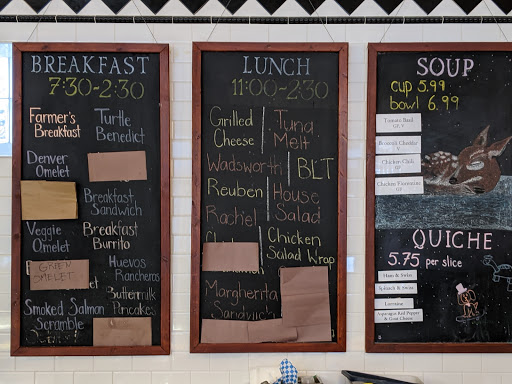 BREAKFAST
7:30-2:30
Farmer's
Breakfast
Denver
Omelet
Veggie
Omelet
GREEN
OMELET
Smoked Salmon
Scramble
Turtle
Benedict
Breakfast
Sandwich
Breakfast
Burrito
Huevos
Rancheros
Buttermilk
Pancakes
LUNCH
11:00-2:30
Grilled
Cheese
Tuna
Melt
Wadsworth
BLT
Reuben
House
Salad
Rachel
Chicken
Salad Wrap
Margherita
Sandwich
SOUP
cup 5.99
bowl 6.99
Tomato Basil
GF, V
Broccoli Cheddar
V
Chicken Chili
GF
Chicken Florentine
GF
QUICHE
5.75 per slice
Ham & Swiss
Spinach & Swiss
Lorraine
Asparagus Red Pepper
& Goat Cheese